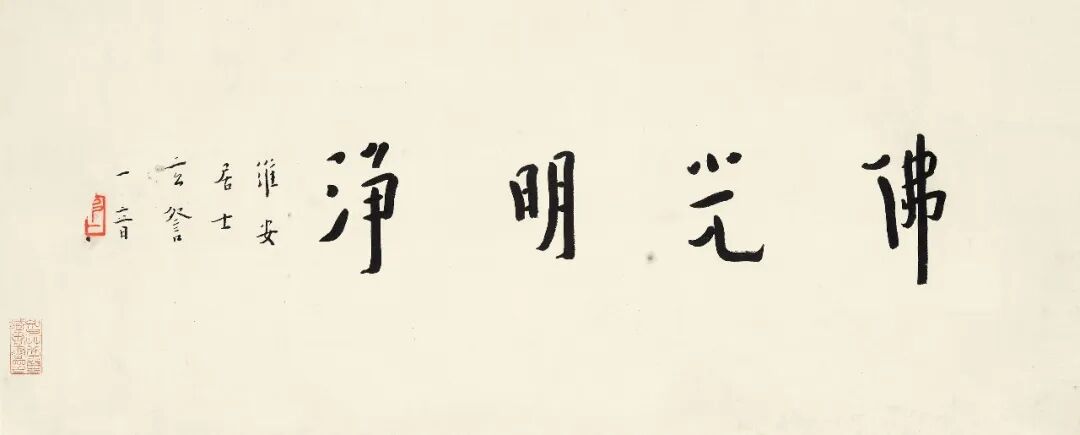 佛光明淨
維安
居士
玄詧
一音